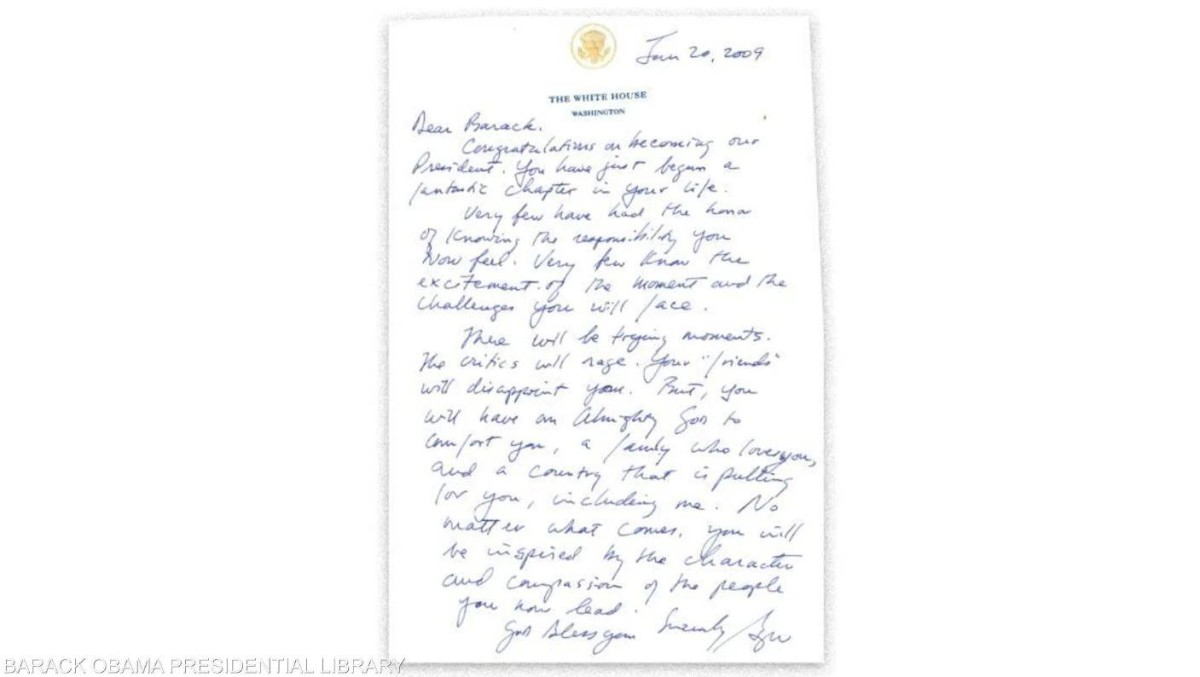 Jan 20, 2009
THE WHITE HOUSE
WASHINGTON
Dear Barack.
Congratulations on becoming our
President. You have just begun a
fantastic chapter in your life.
Very few have had the honor
of knowing the responsibility you
now feel. Very few know the
excitement of the moment and the
challenges you will face.
There will be trying moments.
The critics will rage. Your "friends"
will disappoint you. But, you
will have an Almighty God to
comfort you, a family who loves you,
and a country that is pulling
for you, including me. No
matter what comes, you will
be inspired by the character
and compassion of the people
you now lead.
God bless you
Sincerely, GW
BARACK OBAMA PRESIDENTIAL LIBRARY